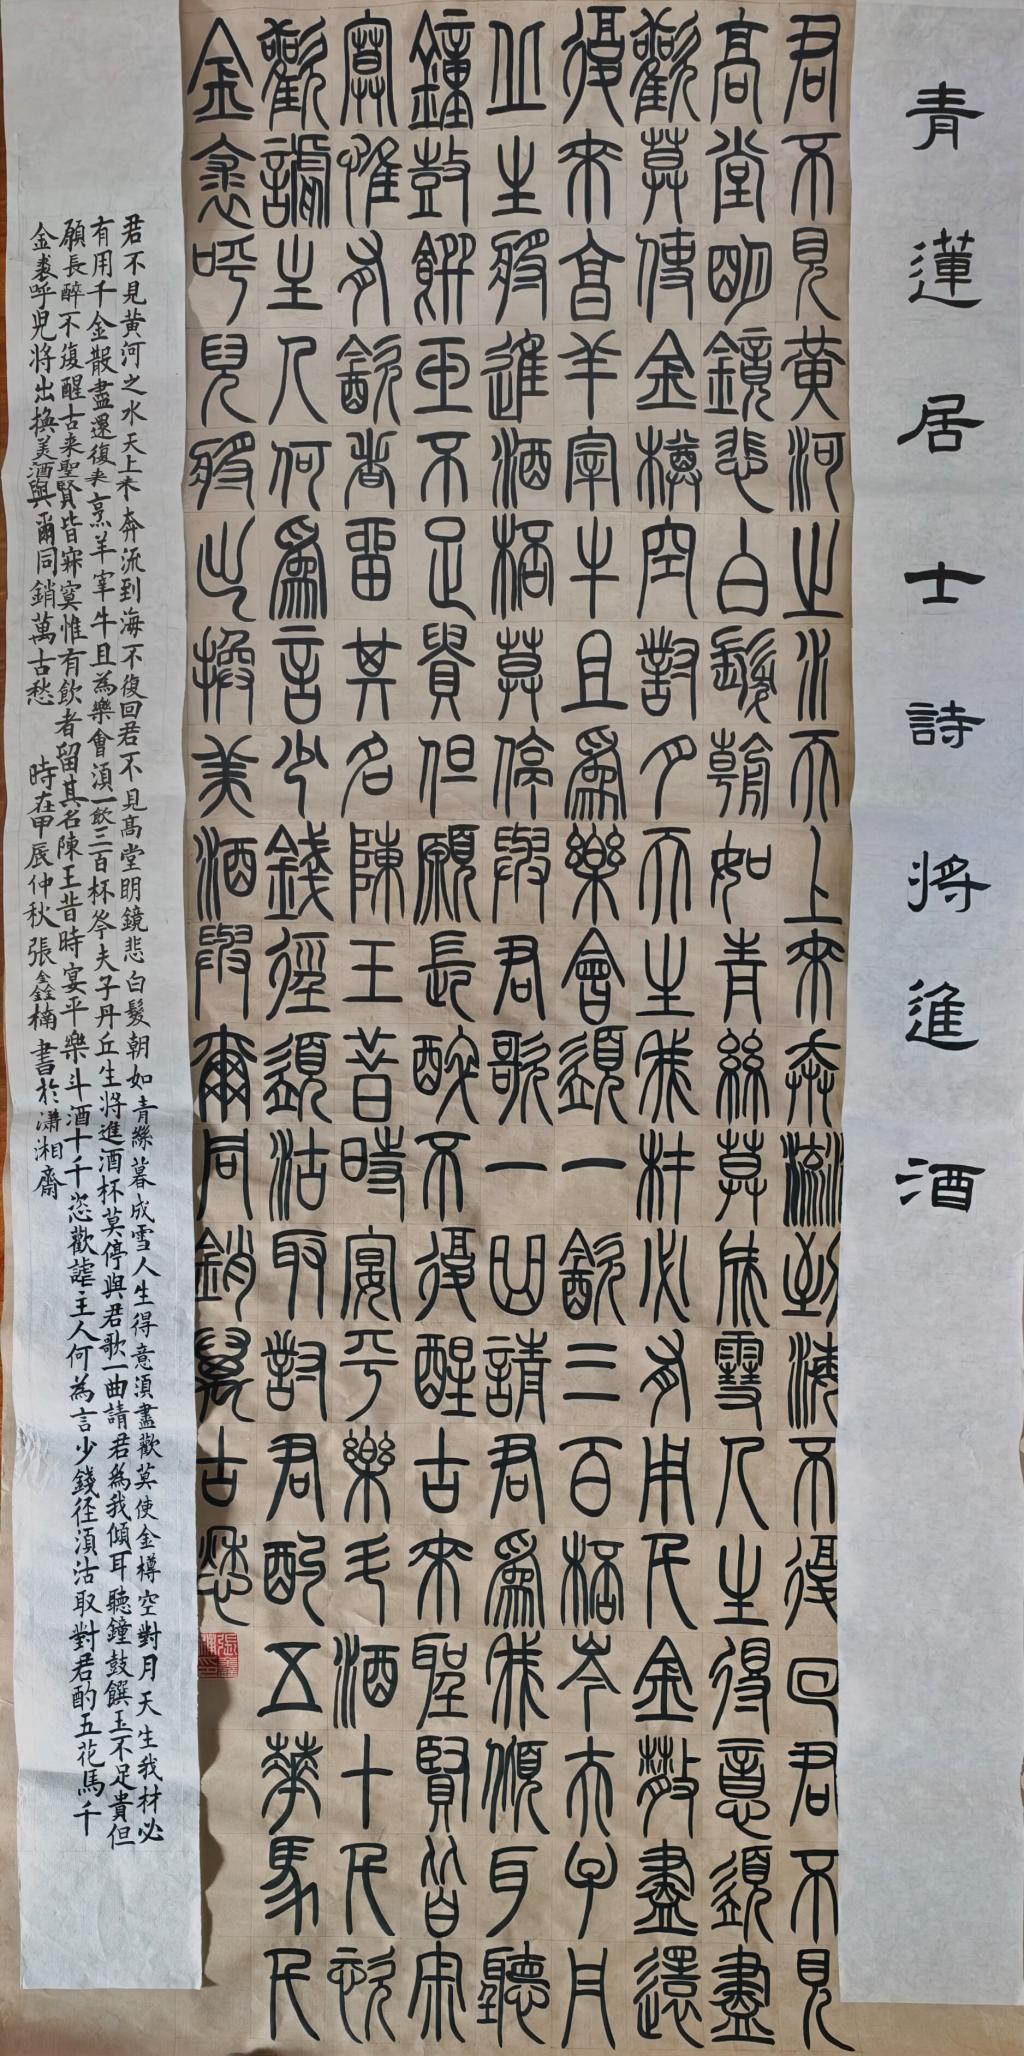 青蓮居士詩將進酒
君不見黃河之水天上來奔流到海不復回君不見
高堂明鏡悲白髮朝如青絲莫成雪人生得意須盡
歡莫使金樽空對月天生我材必有用千金散盡還
復來亯羊宰牛且爲樂會須一飲三百桮岑夫子丹
丘生將進酒桮莫停與君歌一曲請君爲我傾耳聽
鐘鼓饌玉不足貴但願長醉不復醒古來聖賢皆寂
寞惟有飲者留其名陳王昔時宴平樂斗酒十千恣
歡謔主人何爲言少錢徑須沽取對君酌五華馬千
金裘呼兒將出換美酒與爾同銷萬古愁
君不見黃河之水天上來奔流到海不復回君不見高堂明鏡悲白髮朝如青絲暮成雪人生得意須盡歡莫使金樽空對月天生我材必
有用千金散盡還復來烹羊宰牛且為樂會須一飲三百杯岑夫子丹丘生將進酒杯莫停與君歌一曲請君為我傾耳聽鐘鼓饌玉不足貴但
願長醉不復醒古來聖賢皆寂寞惟有飲者留其名陳王昔時宴平樂斗酒十千恣歡謔主人何為言少錢徑須沽取對君酌五花馬千
金裘呼兒將出換美酒與爾同銷萬古愁 時在甲辰仲秋張鑫楠書於瀟湘齋